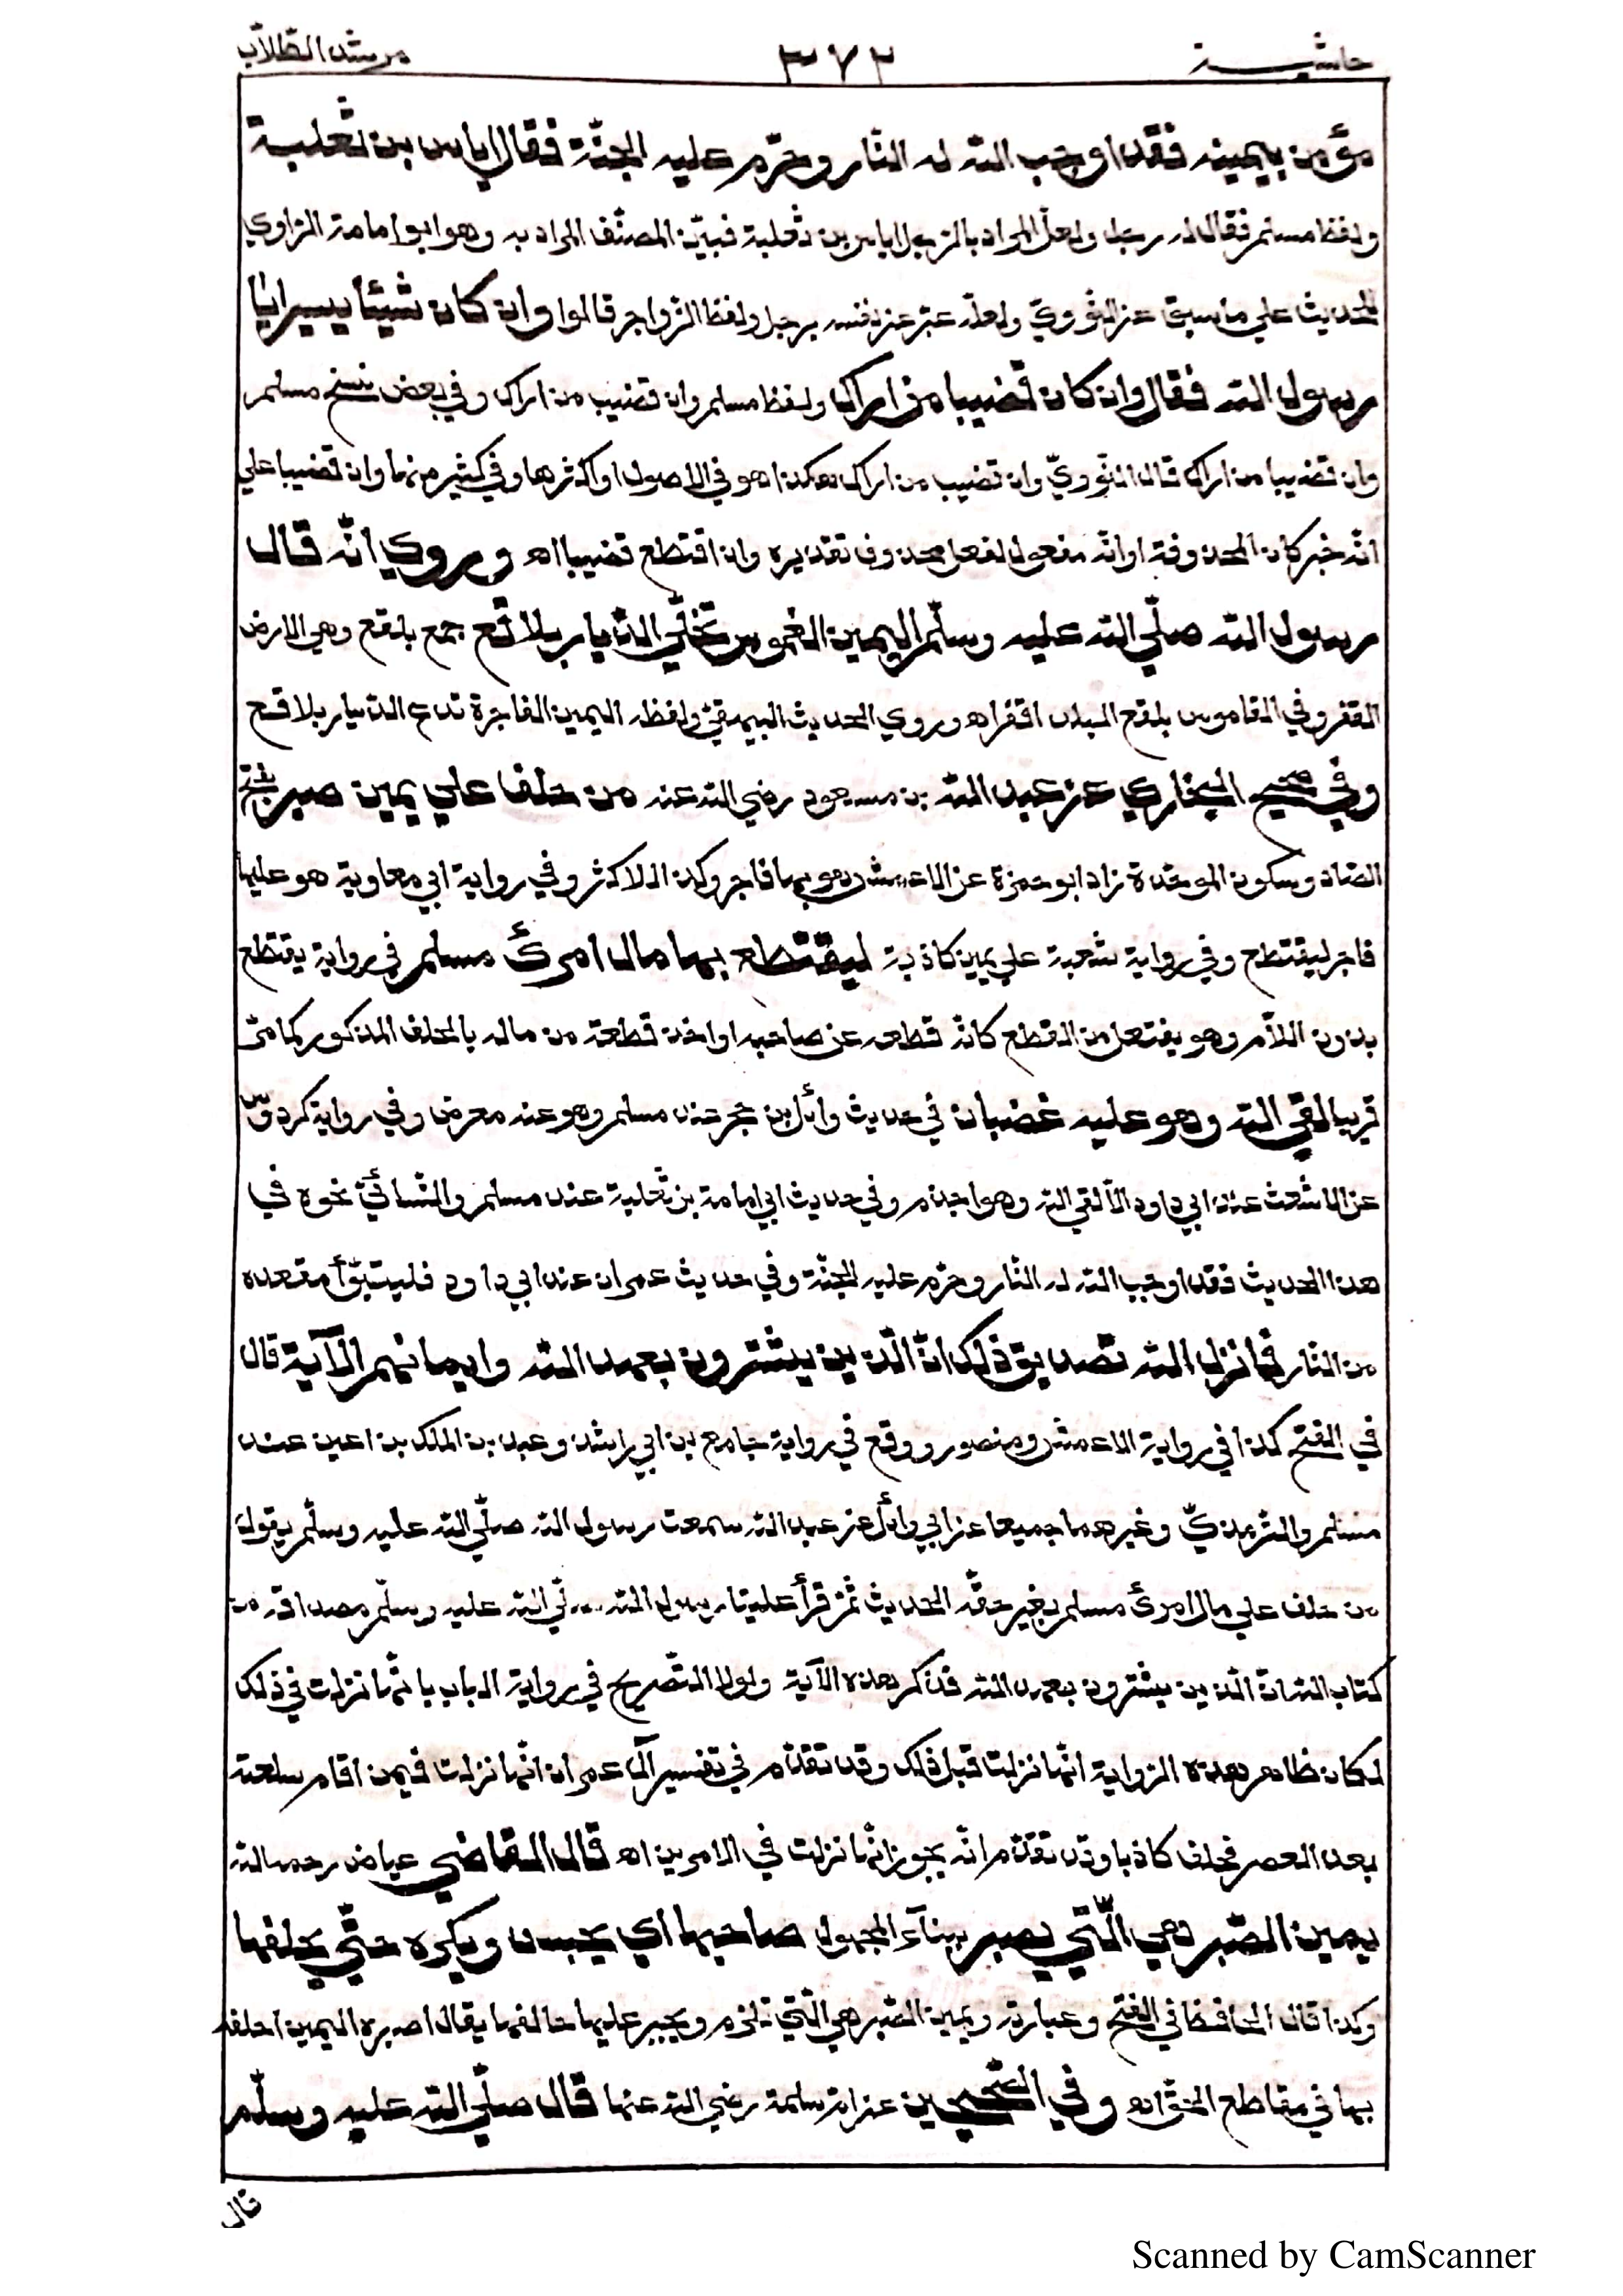 حاشية ٣٧٢ مرشد الطّلّاب
مؤمن بيمينه فقد اوجب الله له النّار وحرّم عليه الجنّة فقال اياس بن ثعلبة
ولفظ مسلم فقال له رجل ولعلّ المراد بالرّجل اياس بن ثعلبة فبيّن المصنّف المراد به وهو ابو امامة الرّاوي
للحديث علي ما سبق عن النّوويّ ولعلّه عبّر عن نفسه برجل ولفظ الزّواجر قالوا وان كان شيئا يسيرا يا
رسول الله فقال وان كان قضيبا من اراك ولفظ مسلم وان قضيب من اراك وفي بعض نسخ مسلم
وان قضيبا من اراك قال النّوويّ وان قضيب من اراك هكذا هو في الاصول او اكثرها وفي كثير منها وان قضيبا علي
انّه خبر كان المحذوفة او انّه مفعول لفعل محذوف تقديره وان اقتطع قضيبا اه وروي انّه قال
رسول الله صلّي الله عليه وسلّم اليمين الغموس تخلّي الدّيار بلاقع جمع بلقع وهي الارض
القفر وفي القاموس بلقع البلد اقفر اه وروي الحديث البيهقيّ ولفظه اليمين الفاجرة تدع الديار بلاقع
وفي صحيح البخاري عن عبد الله بن مسعود رضي الله عنه من حلف علي يمين صبر بفتح
الصّاد وسكون الموحّدة زاد ابو حمزة عن الاعمش هو بها فاجر وكذا للاكثر وفي رواية ابي معاوية هو عليها
فاجر ليقتطع وفي رواية شعبة علي يمين كاذبة ليقتطع بها مال امرئ مسلم في رواية يقتطع
بدون اللّام وهو يفتعل من القطع كانّه قطعه عن صاحبه او اخذ قطعة من ماله بالحلف المذكور كما مرّ
قريبا لقي الله وهو عليه غضبان في حديث وائل بن حجر عند مسلم وهو عنه معرض وفي رواية كردوس
عن الاشعث عند ابي داود الّا لقي الله وهو اجذم وفي حديث ابي امامة بن ثعلبة عند مسلم والنّسائيّ نحوه في
هذا الحديث فقد اوجب الله له النّار وحرّم عليه الجنّة وفي حديث عمران عند ابي داود فليتبوّأ مقعده
من النّار فانزل الله تصديق ذلك انّ الّذين يشترون بعهد الله وايمانهم الآية قال
في الفتح كذا في رواية الاعمش ومنصور ووقع في رواية جامع بن ابي راشد وعبد الملك بن اعين عند
مسلم والترمذيّ وغيرهما جميعا عن ابي وائل عن عبد الله سمعت رسول الله صلّي الله عليه وسلّم يقول
من حلف علي مال امرئ مسلم بغير حقّه الحديث ثمّ قرأ علينا رسول الله صلّي الله عليه وسلّم مصداقه من
كتاب الله انّ الّذين يشترون بعهد الله فذكر هذه الآية ولولا التّصريح في رواية الباب بانّها نزلت في ذلك
لكان ظاهر هذه الرّواية انّها نزلت قبل ذلك وقد تقدّم في تفسير آل عمران انّها نزلت فيمن اقام سلعته
بعد العصر فحلف كاذبا وقد تقدّم انّه يجوز انّها نزلت في الامرين اه قال القاضي عياض رحمه الله
يمين الصّبر هي الّتي يصبر ببناء المجهول صاحبها اي يحبس ويكره حتّي يحلفها
وكذا قال الحافظ في الفتح وعبارته ويمين الصّبر هي الّتي تلزم ويجبر عليها حالفها يقال اصبره اليمين احلفه
بها في مقاطع الحقّ اه وفي الصّحيحين عن ام سلمة رضي الله عنها قال صلّي الله عليه وسلّم
قال
Scanned by CamScanner